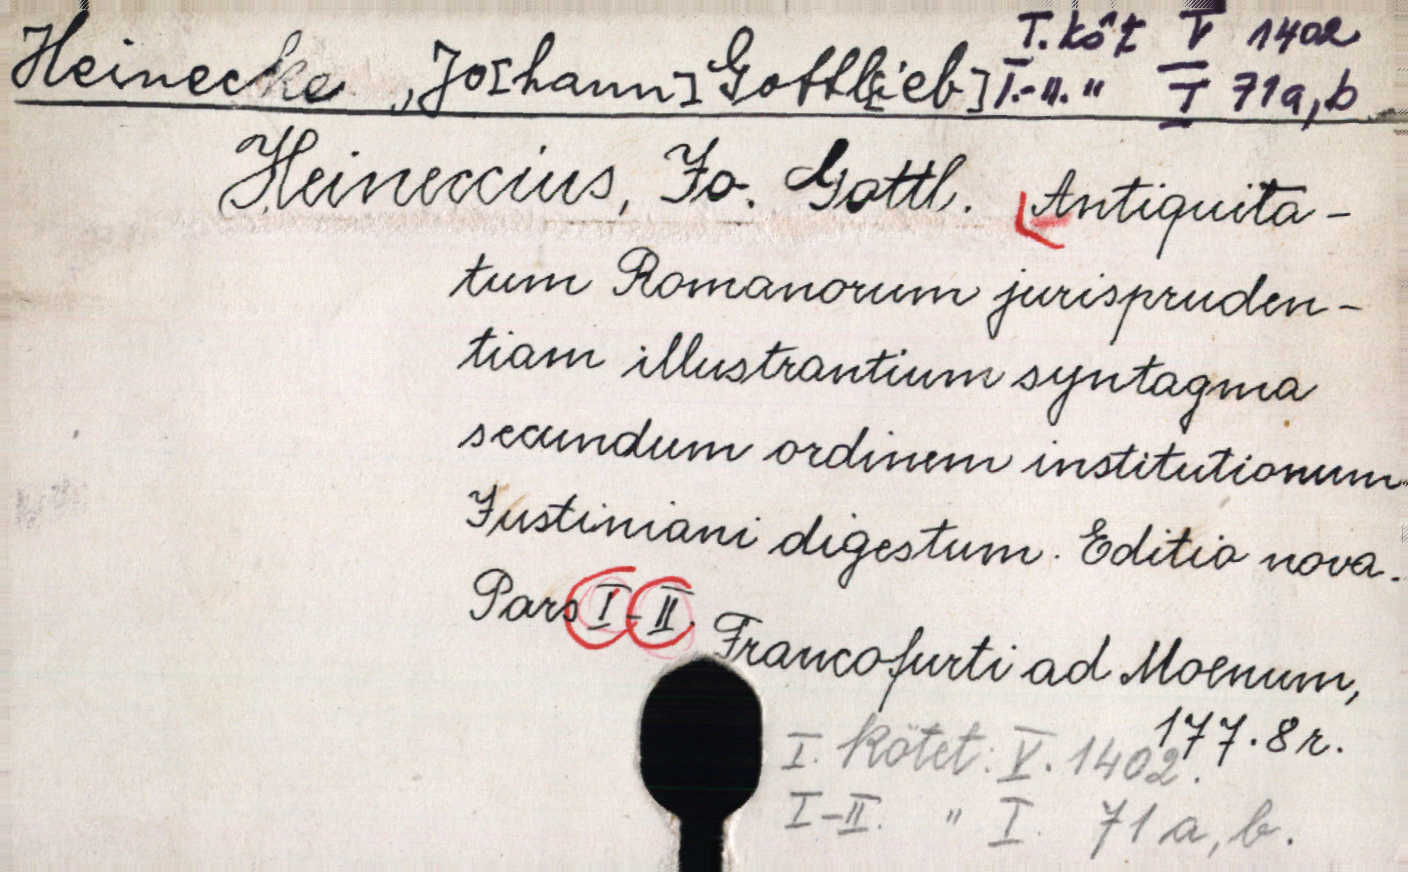 T. köt V 1402
Heinecke, Jo[hann] Gottl[ieb] I.-II. " I 71a,b
Heineccius, Jo. Gottl. Antiquita-
tum Romanorum jurispruden-
tiam illustrantium syntagma
secundum ordinem institutionum
Justiniani digestum. Editio nova.
Pars I-II. Francofurti ad Moenum,
177. 8r.
I. kötet: V. 1402.
I-II. " I. 71 a, b.